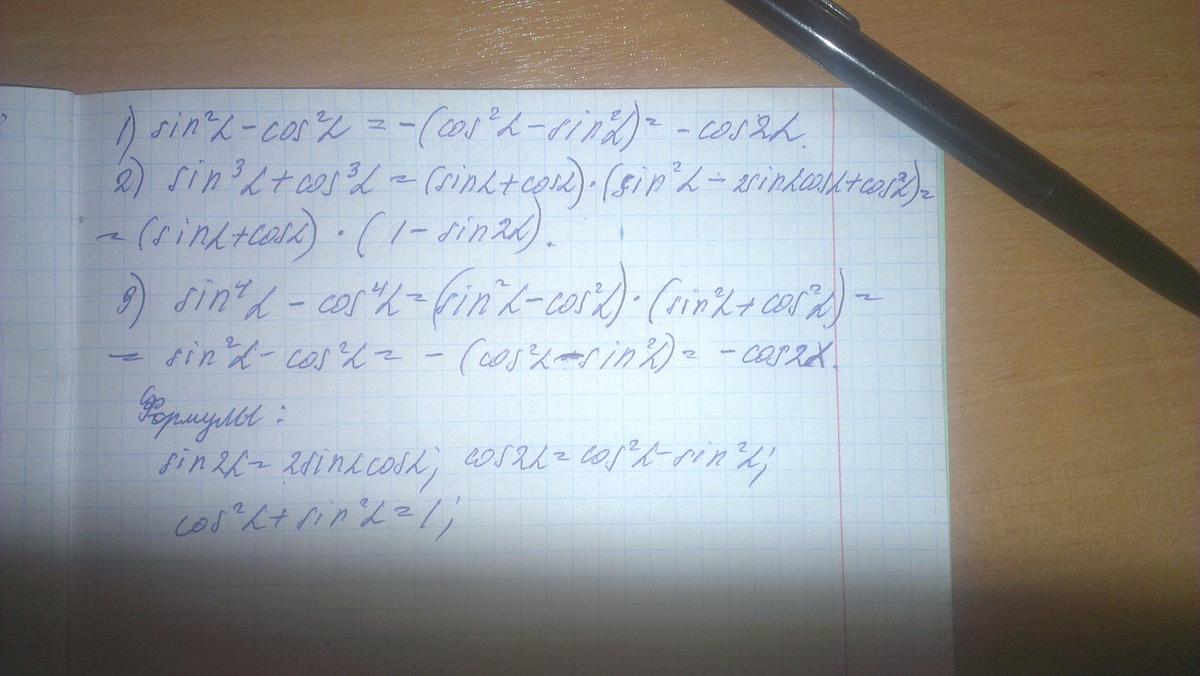 1) sin²α - cos²α = -(cos²α - sin²α) = -cos2α.
2) sin³α + cos³α = (sinα + cosα)·(sin²α - 2sinαcosα + cos²α) =
= (sinα + cosα) · (1 - sin2α).
3) sin⁴α - cos⁴α = (sin²α - cos²α)·(sin²α + cos²α) =
= sin²α - cos²α = -(cos²α - sin²α) = -cos2α.
Формулы:
sin2α = 2sinαcosα; cos2α = cos²α - sin²α;
cos²α + sin²α = 1;